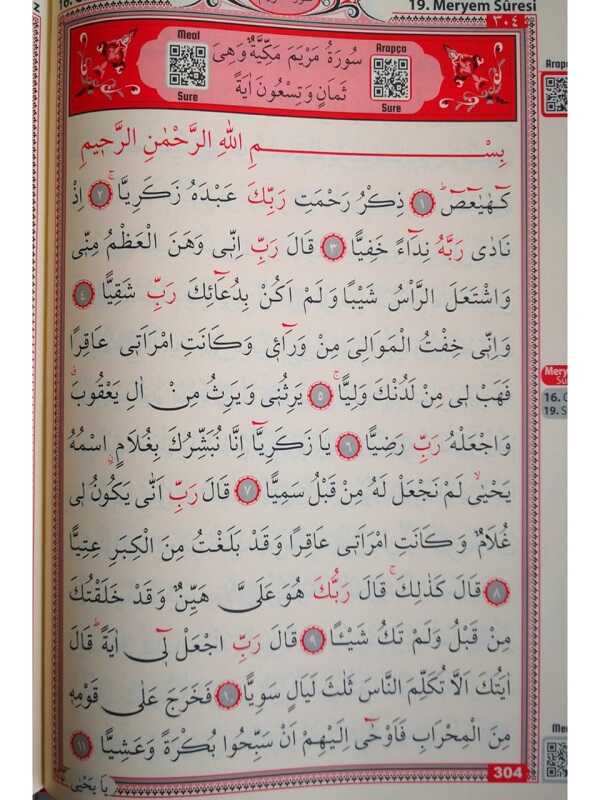 19. Meryem Sûresi
٣٠٤
Meal
Arapça
سُورَةُ مَرْيَمَ مَكِّيَّةٌ وَهِيَ
ثَمَانٍ وَتِسْعُونَ اٰيَةً
Sure
Sure
Arapç
بِسْمِ اللّٰهِ الرَّحْمٰنِ الرَّحٖيمِ
كٓهٰيٰعٓصٓ ۚ ﴿١﴾ ذِكْرُ رَحْمَتِ رَبِّكَ عَبْدَهُ زَكَرِيَّا ۚ ﴿٢﴾ اِذْ
نَادٰى رَبَّهُ نِدَٓاءً خَفِيًّا ﴿٣﴾ قَالَ رَبِّ اِنّٖى وَهَنَ الْعَظْمُ مِنّٖى
وَاشْتَعَلَ الرَّأْسُ شَيْبًا وَلَمْ اَكُنْ بِدُعَٓائِكَ رَبِّ شَقِيًّا ﴿٤﴾
وَاِنّٖى خِفْتُ الْمَوَالِىَ مِنْ وَرَٓائٖى وَكَانَتِ امْرَاَتٖى عَاقِرًا
فَهَبْ لٖى مِنْ لَدُنْكَ وَلِيًّا ۙ ﴿٥﴾ يَرِثُنٖى وَيَرِثُ مِنْ اٰلِ يَعْقُوبَ ۗ
وَاجْعَلْهُ رَبِّ رَضِيًّا ﴿٦﴾ يَا زَكَرِيَّٓا اِنَّا نُبَشِّرُكَ بِغُلَامٍ اسْمُهُ
يَحْيٰى ۙ لَمْ نَجْعَلْ لَهُ مِنْ قَبْلُ سَمِيًّا ﴿٧﴾ قَالَ رَبِّ اَنّٰى يَكُونُ لٖى
غُلَامٌ وَكَانَتِ امْرَاَتٖى عَاقِرًا وَقَدْ بَلَغْتُ مِنَ الْكِبَرِ عِتِيًّا
﴿٨﴾ قَالَ كَذٰلِكَ ۚ قَالَ رَبُّكَ هُوَ عَلَىَّ هَيِّنٌ وَقَدْ خَلَقْتُكَ
مِنْ قَبْلُ وَلَمْ تَكُ شَيْـًٔا ﴿٩﴾ قَالَ رَبِّ اجْعَلْ لٖٓى اٰيَةً ۜ قَالَ
اٰيَتُكَ اَلَّا تُكَلِّمَ النَّاسَ ثَلٰثَ لَيَالٍ سَوِيًّا ﴿١٠﴾ فَخَرَجَ عَلٰى قَوْمِهٖ
مِنَ الْمِحْرَابِ فَاَوْحٰٓى اِلَيْهِمْ اَنْ سَبِّحُوا بُكْرَةً وَعَشِيًّا ﴿١١﴾
304
يَا يَحْيٰى